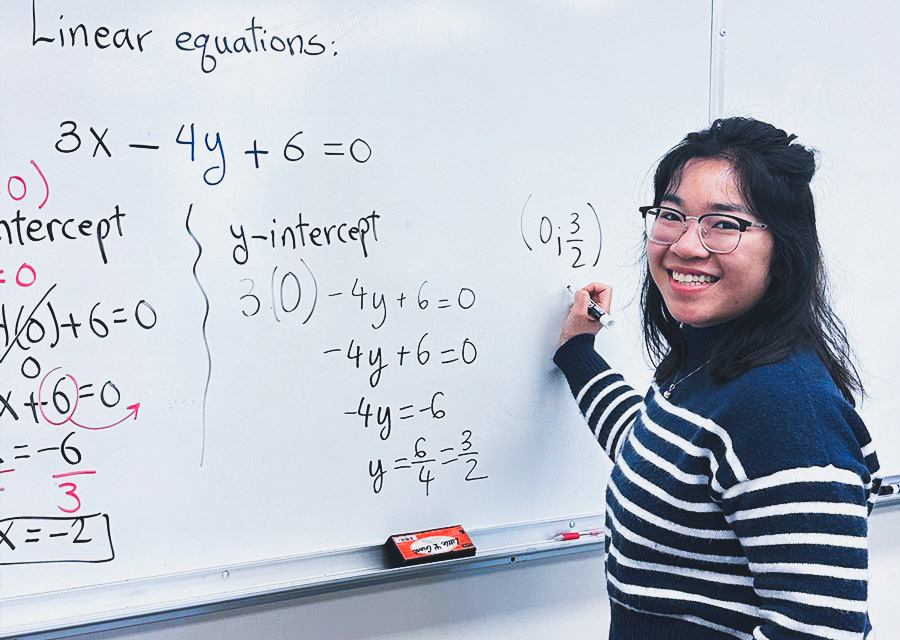 Linear equations:
3x − 4y + 6 = 0
0)
ntercept
= 0
(0) + 6 = 0
0
x + 6 = 0
= −6
3
x = −2
y-intercept
3(0) − 4y + 6 = 0
−4y + 6 = 0
−4y = −6
y = 6/4 = 3/2
(0; 3/2)